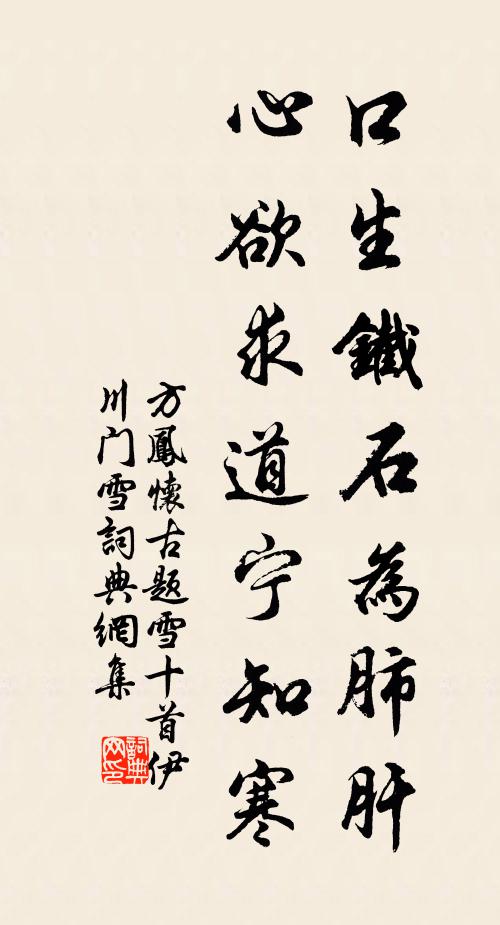 口生鐵石為肺肝
心欲求道宁知寒
方鳳懷古題雪十首伊
川门雪詞典網集
詞典
网印